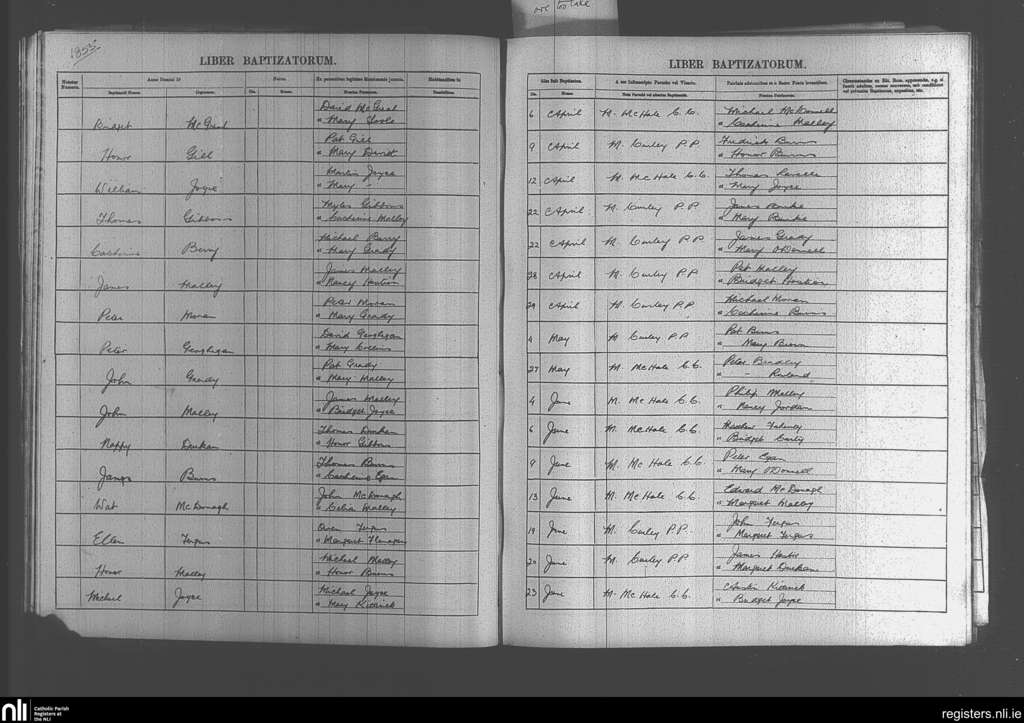 are to take
1855
LIBER BAPTIZATORUM.
Numerus
Numerus.
Anno Domini 18
Natus.
Ex parentibus legitimo Matrimonio junctis.
Habitantibus in
Baptizandi Nomen
Cognomen.
Die.
Mense.
Nomina Parentum.
Domicilium.
Bridget McGreal David McGreal
" Mary Toole
Honor Gill Pat Gill
" Mary David
William Joyce Martin Joyce
" Mary -
Thomas Gibbons Myles Gibbons
" Catherine Malley
Catherine Berry Michael Berry
" Mary Grady
James Malley James Malley
" Nancy
Peter Moran Peter Moran
" Mary Grady
Peter Geoghegan David Geoghegan
" Mary Collins
John Grady Pat Grady
" Mary Malley
John Malley James Malley
" Bridget Joyce
Nappy Durkan Thomas Durkan
" Honor Gibbons
James Burns Thomas Burns
" Catherine Egan
Wat McDonagh John McDonagh
" Celia Malley
Ellen Fergus Owen Fergus
" Margaret Flanagan
Honor Malley Michael Malley
" Honor Burns
Michael Joyce Michael Joyce
" Mary Kitterick
LIBER BAPTIZATORUM.
Die.
Mense.
Nomina Patrinorum.
6 April M. McHale C.C. Michael McDonnell
" Catherine Malley
9 April M. Curley P.P. Fredrick Burns
" Honor Burns
12 April M. McHale C.C. Thomas Lavelle
" Mary Joyce
22 April M. Curley P.P. James Burke
" Mary Burke
22 April M. Curley P.P. James Grady
" Mary O'Donnell
28 April M. Curley P.P. Pat Malley
" Bridget
29 April M. Curley P.P. Michael Moran
" Catherine Burns
4 May M. Curley P.P. Pat Burns
" Mary Brown
27 May M. McHale C.C. Peter Bradley
" - Ruland
4 June M. McHale C.C. Philip Malley
" Nancy Jordan
6 June M. McHale C.C. Matthew
" Bridget
9 June M. McHale C.C. Peter Egan
" Mary O'Donnell
13 June M. McHale C.C. Edward McDonagh
" Margaret Malley
19 June M. Curley P.P. John Fergus
" Margaret Fergus
20 June M. Curley P.P. James
" Margaret Durkan
23 June M. McHale C.C. Austin Kitterick
" Bridget Joyce
nli
Catholic Parish
Registers at
the NLI
registers.nli.ie